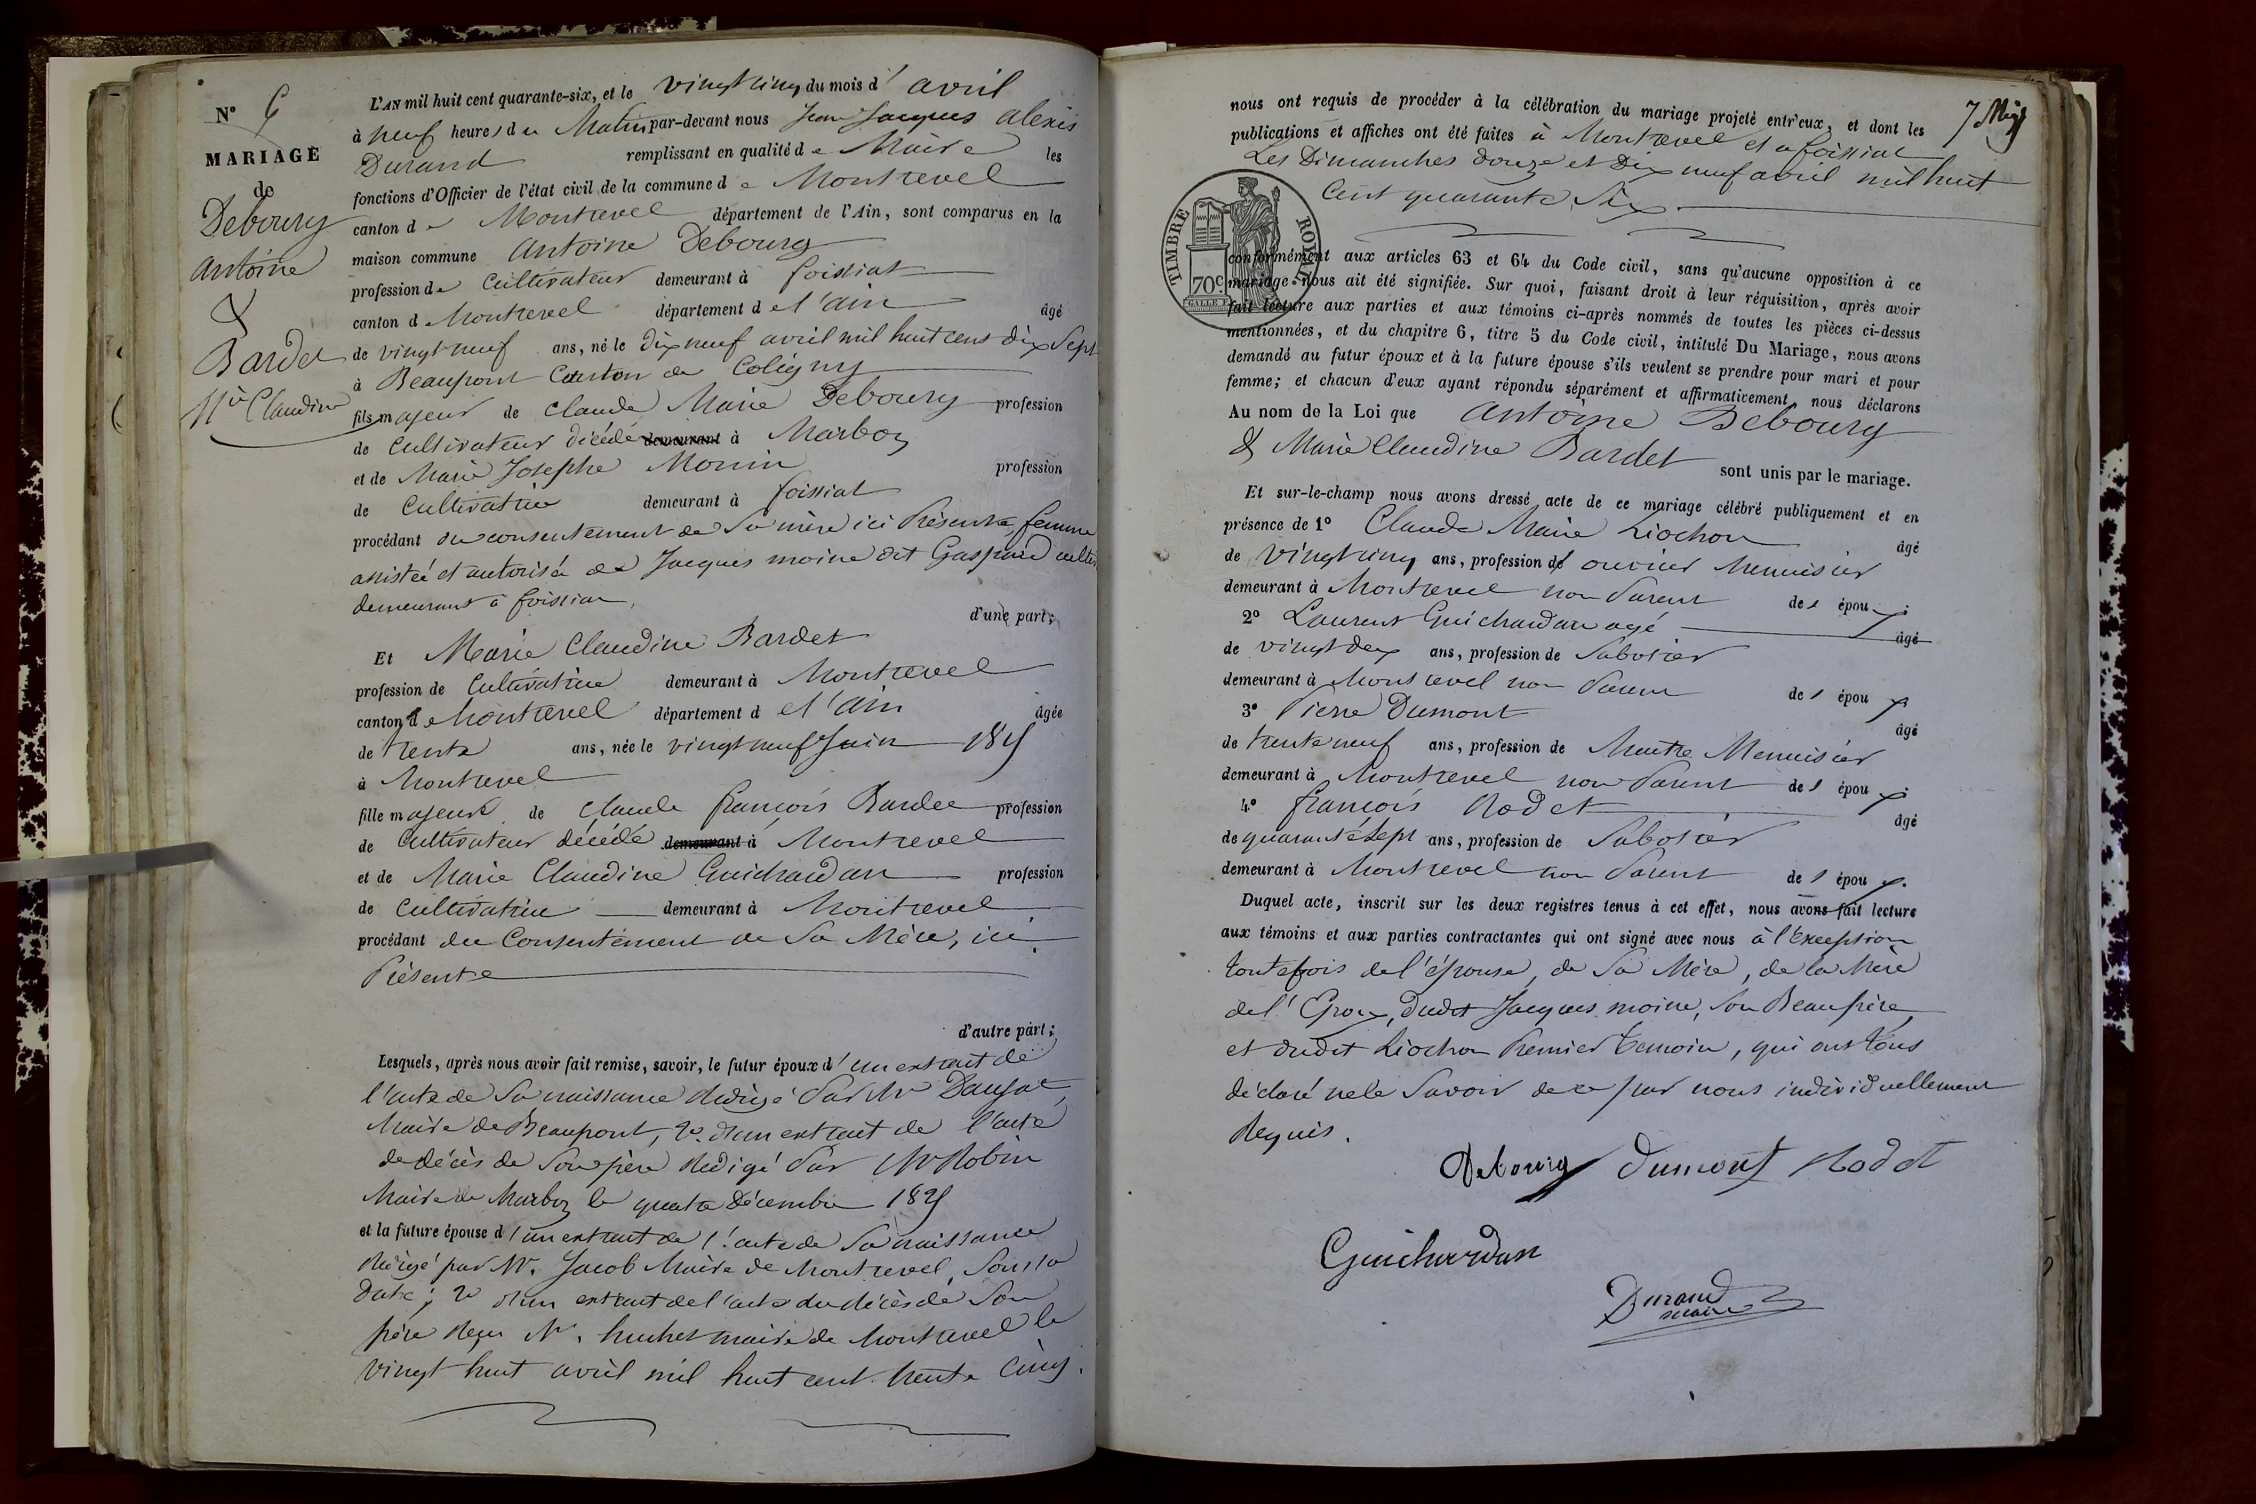 N° 6
MARIAGE
de
Debourg
Antoine
&
Bardet
Mie Claudine
L'AN mil huit cent quarante-six, et le vingt cinq du mois d'avril
à neuf heures du Matin par-devant nous Jean Jacques Alexis
Durand remplissant en qualité de Maire les
fonctions d'Officier de l'état civil de la commune de Montrevel
canton de Montrevel département de l'Ain, sont comparus en la
maison commune Antoine Debourg
profession de Cultivateur demeurant à foissiat
canton d Montrevel département de l'ain âgé
de vingt neuf ans, né le dix neuf avril mil huit cens dix Sept
à Beaupont Canton de Coligny
fils majeur de Claude Marie Debourg profession
de Cultivateur décédé demeurant à Marboz
et de Marie Josephe Monin profession
de Cultivatrice demeurant à foissiat
procédant du consentement de Sa mère ici Présente, femme
assistée et autorisée de Jacques moine dit Gaspard cultiv
demeurant à foissiat,
d'une part;
Et Marie Claudine Bardet
profession de Cultivatrice demeurant à Montrevel
canton de Montrevel département de l'Ain âgée
de trente ans, née le vingt neuf Juin 1815
à Montrevel
fille majeure de Claude françois Bardet profession
de Cultivateur décédé demeurant à Montrevel
et de Marie Claudine Guichardan profession
de Cultivatrice demeurant à Montrevel
procédant du Consentement de Sa Mère, ici
Présente
d'autre part;
Lesquels, après nous avoir fait remise, savoir, le futur époux d'un extrait de
l'acte de Sa naissance Rédigé Par Mr
Maire de Beaupont, 2° d'un extrait de l'acte
de décès de Son père Rédigé Par Mr Robin
Maire de Marboz le quatre Décembre
et la future épouse d'un extrait de l'acte de Sa naissance
Rédigé par Mr. Jacob Maire de Montrevel, Sous la
Date; 2° d'un extrait de l'acte du décès de Son
père Reçu Mr. maire de Montrevel le
vingt huit avril mil huit cent trente Cinq.
7 Mgg
nous ont requis de procéder à la célébration du mariage projeté entr'eux, et dont les
publications et affiches ont été faites à Montrevel et a foissiat
Les Dimanches douze et Dix neuf avril mil huit
Cent quarante Six
TIMBRE ROYAL
70c
conformément aux articles 63 et 64 du Code civil, sans qu'aucune opposition à ce
mariage nous ait été signifiée. Sur quoi, faisant droit à leur réquisition, après avoir
fait lecture aux parties et aux témoins ci-après nommés de toutes les pièces ci-dessus
mentionnées, et du chapitre 6, titre 5 du Code civil, intitulé Du Mariage, nous avons
demandé au futur époux et à la future épouse s'ils veulent se prendre pour mari et pour
femme; et chacun d'eux ayant répondu séparément et affirmativement, nous déclarons
Au nom de la Loi que Antoine Debourg
& Marie Claudine Bardet sont unis par le mariage.
Et sur-le-champ nous avons dressé acte de ce mariage célébré publiquement et en
présence de 1° Claude Marie Liochon âgé
de vingt cinq ans, profession d' ouvrier Menuisier
demeurant à Montrevel non Parent des époux.
2° Laurent Guichardan agé âgé
de vingt deux ans, profession de Sabotier
demeurant à Montrevel non Parent des époux
3° Pierre Dumont âgé
de trente neuf ans, profession de Maitre Menuisier
demeurant à Montrevel non Parent des époux.
4° françois Rodet âgé
de quarante Sept ans, profession de Sabotier
demeurant à Montrevel non Parent des époux.
Duquel acte, inscrit sur les deux registres tenus à cet effet, nous avons fait lecture
aux témoins et aux parties contractantes qui ont signé avec nous à l'Exception
toutefois de l'épouse, de Sa Mère, de la Mère
de l'Epoux, dudit Jacques moine, Son Beau père,
et dudit Liochon Premier temoin, qui ont tous
déclaré ne le Savoir de ce par nous individuellement
Requis.
Debourg Dumont Rodet
Guichardan
Durand
maire